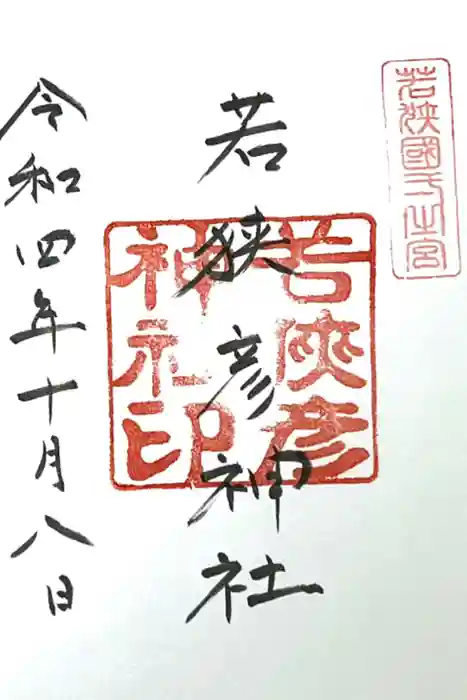 若狭國一之宮
若狭彦神社
若狹彦
神社印
令和四年十月八日